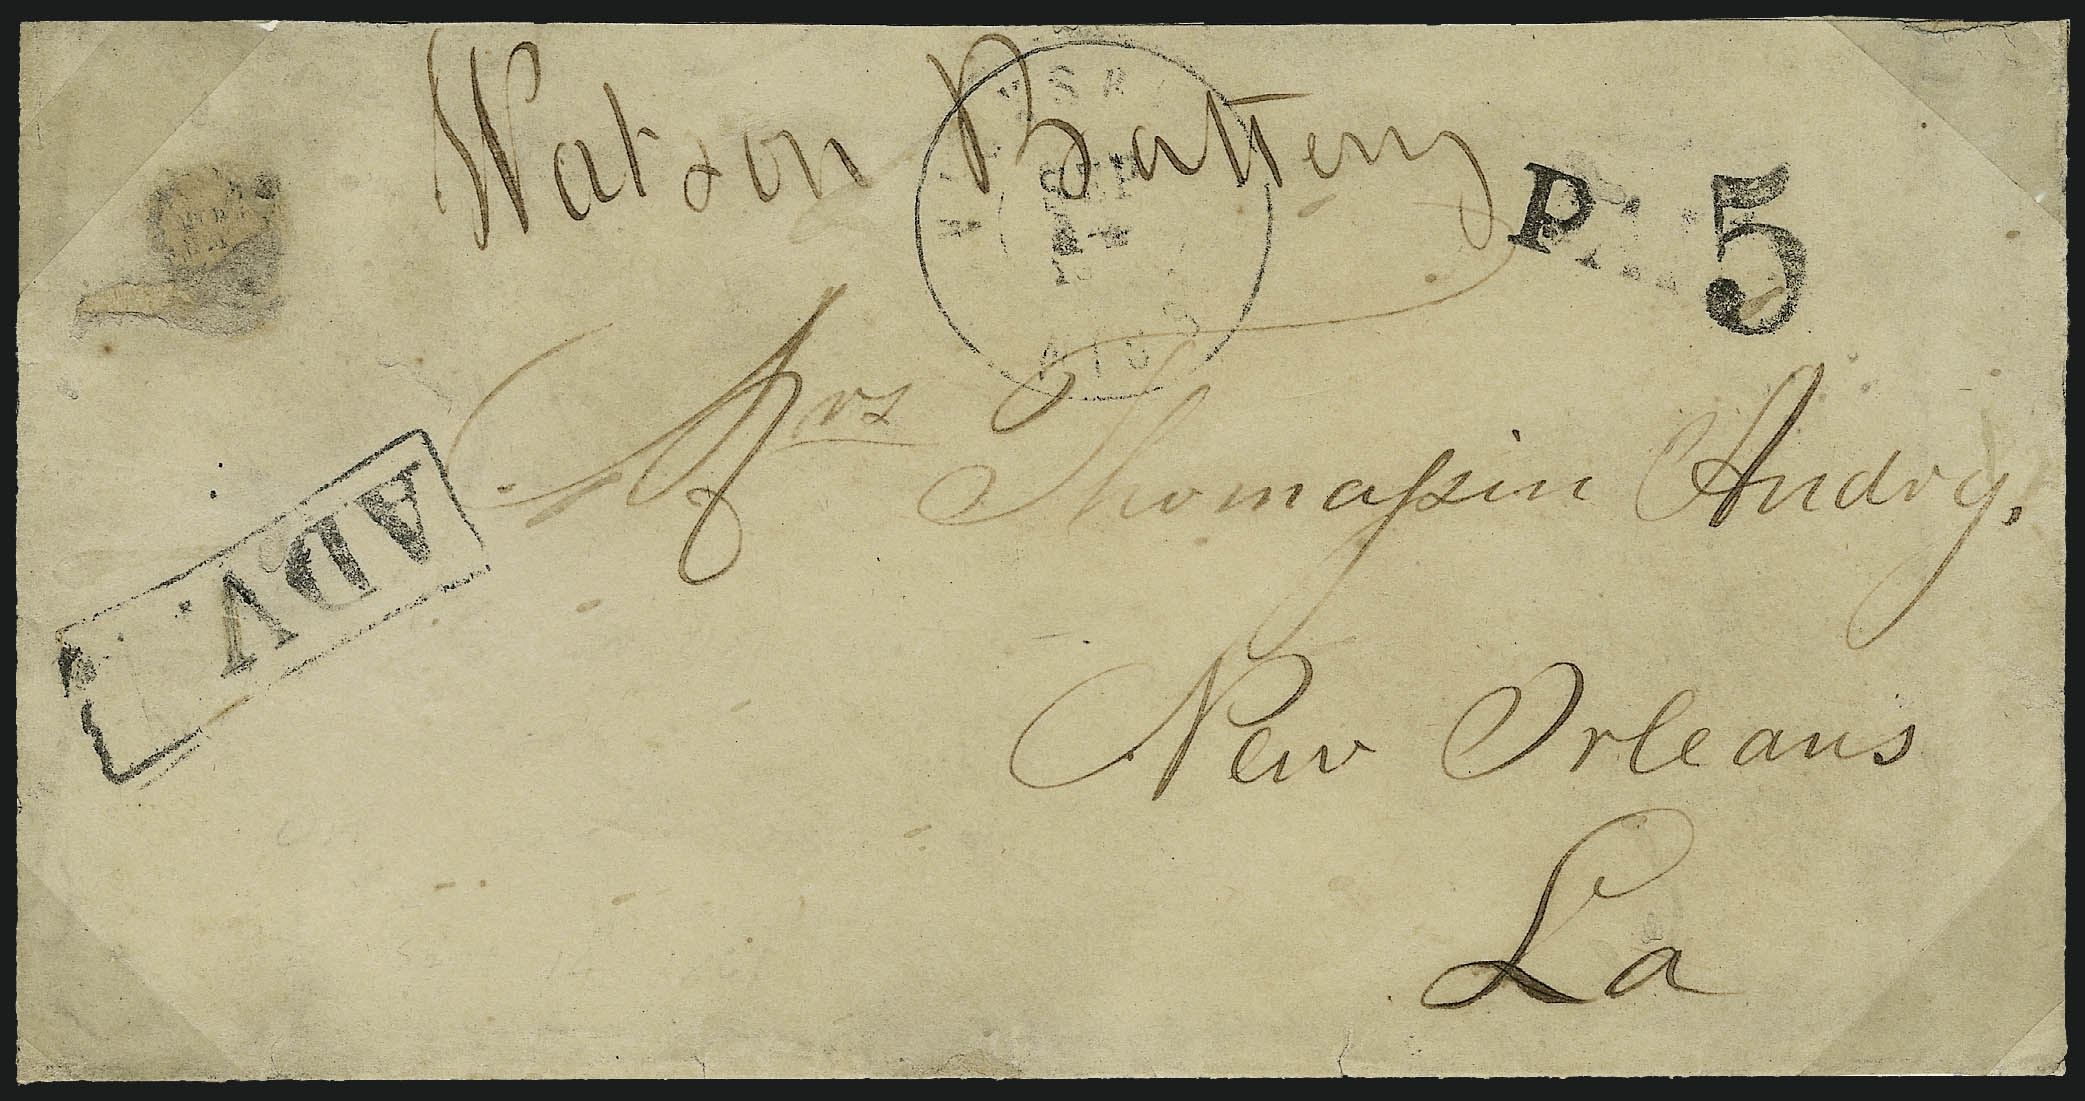 Watson Battery
P 5
Mrs Thomassin Andry.
ADV.
New Orleans
La